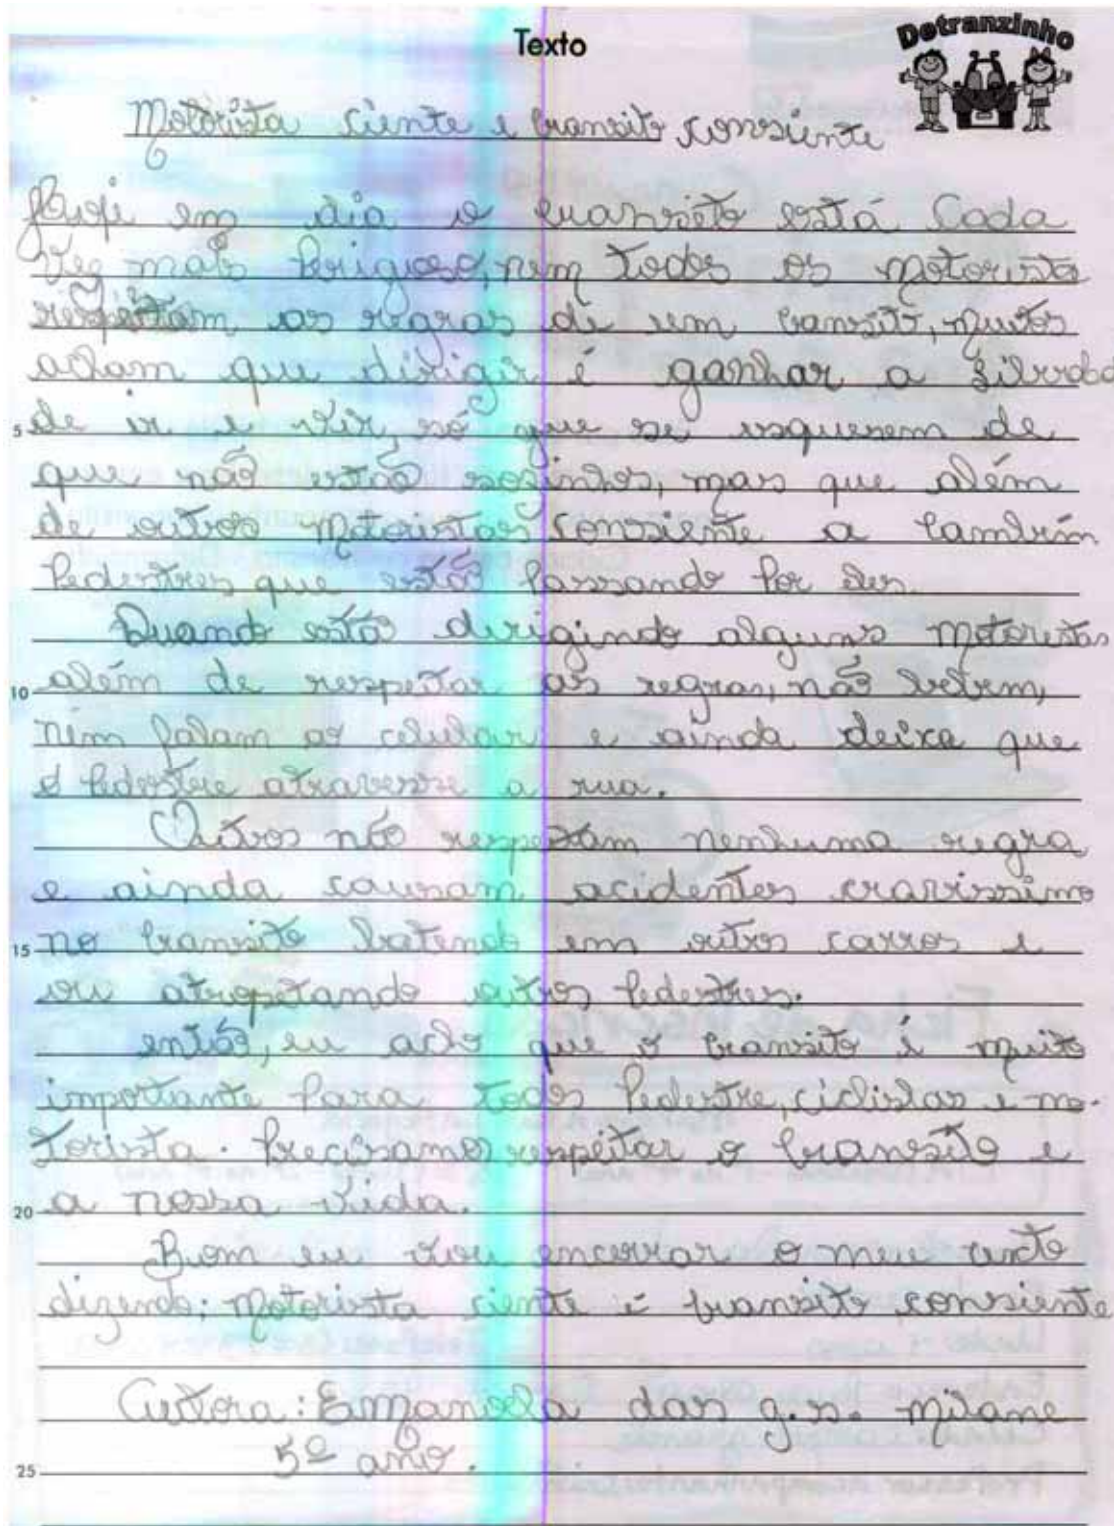 Texto
Detranzinho
Motorista ciente e transito consiente
em dia o transito está Cada
Vez mais perigoso, nem todos os motorista
respeitam as regras de um transito, muitos
acham que dirigir é ganhar a
de ir e vir, só que se esquesem de
que não estão sozinhos, mas que além
de outros motoristas consiente a também
Pedestres que estão passando por eles.
Quando está dirigindo alguns motoristas
10 além de respeitar as regras, não bebem,
nem falam ao celular e ainda deixa que
o Pedestre atravesse a rua.
Outros não respeitam nenhuma regra
e ainda causam acidentes
15 no transito batendo em outros carros e
ou atropelando outros Pedestres.
então, eu acho que o transito é muito
importante para todos Pedestre, ciclistas e mo-
torista. Precisamos respeitar o transito e
20 a nossa vida.
Bom eu vou encerrar o meu texto
dizendo: motorista ciente é transito consiente
Autora: Emanoela das g.s. milane
5º ano.
25